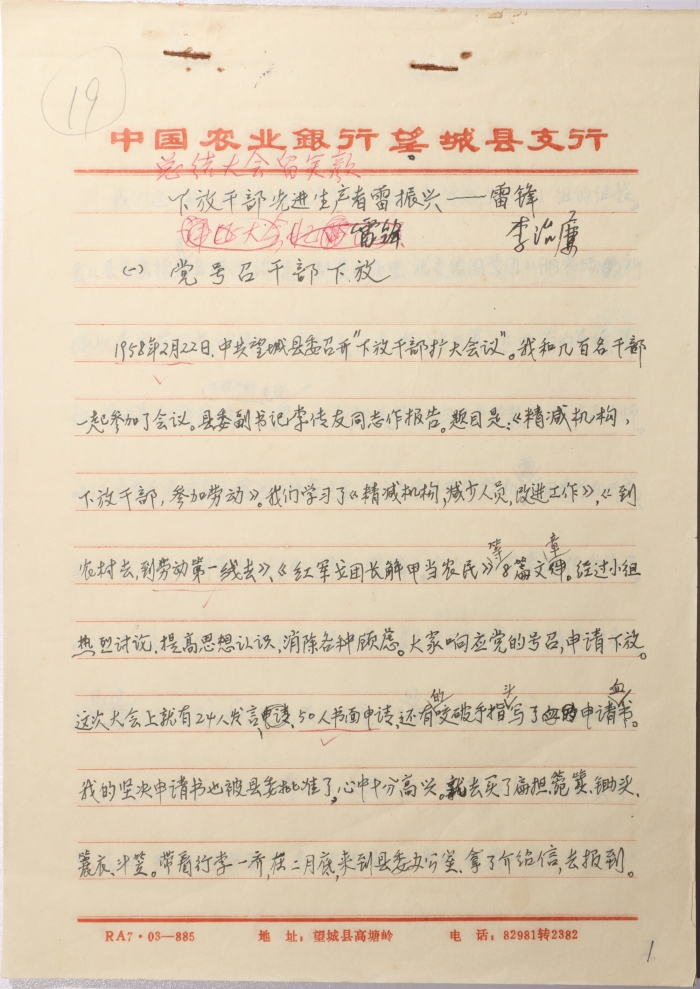 19
中国农业銀行望城县支行
总结大会留笑歌
下放干部先进生产者雷振兴——雷锋
雷锋 李治廉
㈠ 党号召干部下放
1958年2月22日、中共望城县委召开"下放干部扩大会议"。我和几百名干部
一起参加了会议。县委副书记李传友同志作报告。题目是:《精减机构,
下放干部,参加劳动》。我们学习了《精减机构,减少人员,改进工作》,《到
农村去,到劳动第一线去》、《红军女团长解甲当农民》等8篇文章。经过小组
热烈讨论、提高思想认识,消除各种顾虑。大家响应党的号召,申请下放。
这次大会上就有24人发言申请,50人书面申请,还有的咬破手指头写了血申请书。
我的坚决申请书也被县委批准了,心中十分高兴。就去买了扁担、箢箕、锄头、
蓑衣、斗笠。带着行李一齐,在二月底,来到县委办公室、拿了介绍信,去报到。
RA7·03—885 地 址:望城县高塘岭 电 话:82981转2382
1